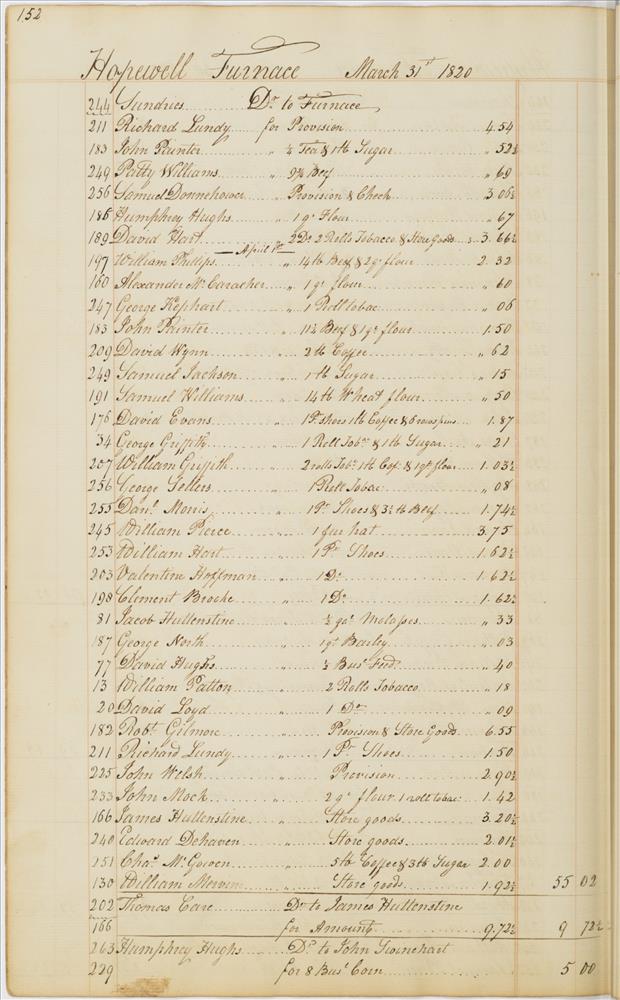 152
Hopewell Furnace March 31st 1820
244 Sundries Dr to Furnace
211 Richard Lundy for Provision 4.54
183 John Painter " ¼ Tea & 1 lb Sugar " 52½
249 Patty Williams " 9¾ Beef " 69
256 Samuel Donnehower " Provision & Check 3.06½
186 Humphrey Hughs " 1 qr Flour " 67
189 David Hart 2 Do 2 Rolls Tobacco & Store Goods 3.66½
April 1st
197 William Phillips " 14 lb Beef & 2 qr flour 2.32
160 Alexander McCaracher " 1 qr flour " 60
247 George Kephart " 1 Roll tobac " 06
183 John Painter " 11½ Beef & 1 qr flour 1.50
209 David Wynn " 2 lb Coffee " 62
249 Samuel Jackson " 1 lb Sugar " 15
191 Samuel Williams " 14 lb Wheat flour " 50
176 David Evans " 1 Pr shoes 1 lb Coffee & 6 1.87
34 George Griffith " 1 Roll Tobac & 1 lb Sugar " 21
207 William Griffith " 2 rolls Tobc 1 lb Cof. & 1 qr flour 1.03½
256 George Sellers " 1 Roll Tobac " 08
255 Danl Morris " 1 Pr Shoes & 3½ lb Beef 1.74½
245 William Pierce " 1 fur hat 3.75
253 William Hart " 1 Pr Shoes 1.62½
203 Valentine Hoffman " 1 Do 1.62½
198 Clement Brooke " 1 Do 1.62½
81 Jacob Hullenstine " ½ gal Molasses " 33
187 George North " 1 qt Barley " 03
77 David Hughs " ½ Bus Feed " 40
13 William Patton " 2 Rolls Tobacco " 18
20 David Loyd " 1 Do " 09
182 Robt Gilmore Provision & Store Goods 6.55
211 Richard Lundy " 1 Pr Shoes 1.50
225 John Welsh " Provision 2.90½
233 John Mock " 2 qr flour 1 roll tobac 1.42
166 James Hullenstine " Store goods 3.20½
240 Edward Dehaven " Store goods 2.01½
251 Chas McGowen " 5 lb Coffee & 3 lb Sugar 2.00
130 William Mervine " Store goods 1.92½ 55 02
202 Thomas Care Dr to James Hullenstine
166 for Amount 9.72½ 9 72½
263 Humphrey Hughs Dr to John Swinehart
229 for 8 Busl Corn 5 00